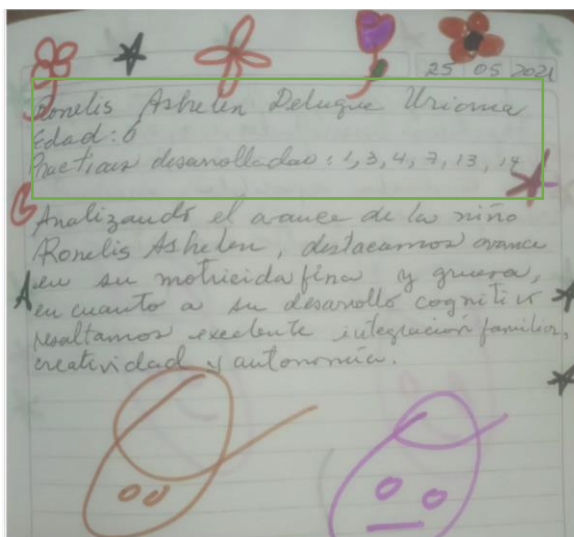 25 05 2021
Ronelis Ashelen Deluque Urioma
Edad: 6
Practicas desarrolladas: 1, 3, 4, 7, 13, 14
Analizando el avance de la niño
Ronelis Ashelen, destacamos avance
en su motricida fina y gruesa,
en cuanto a su desarrollo cognitivo
resaltamos excelente integracion familiar,
creatividad y autonomía.